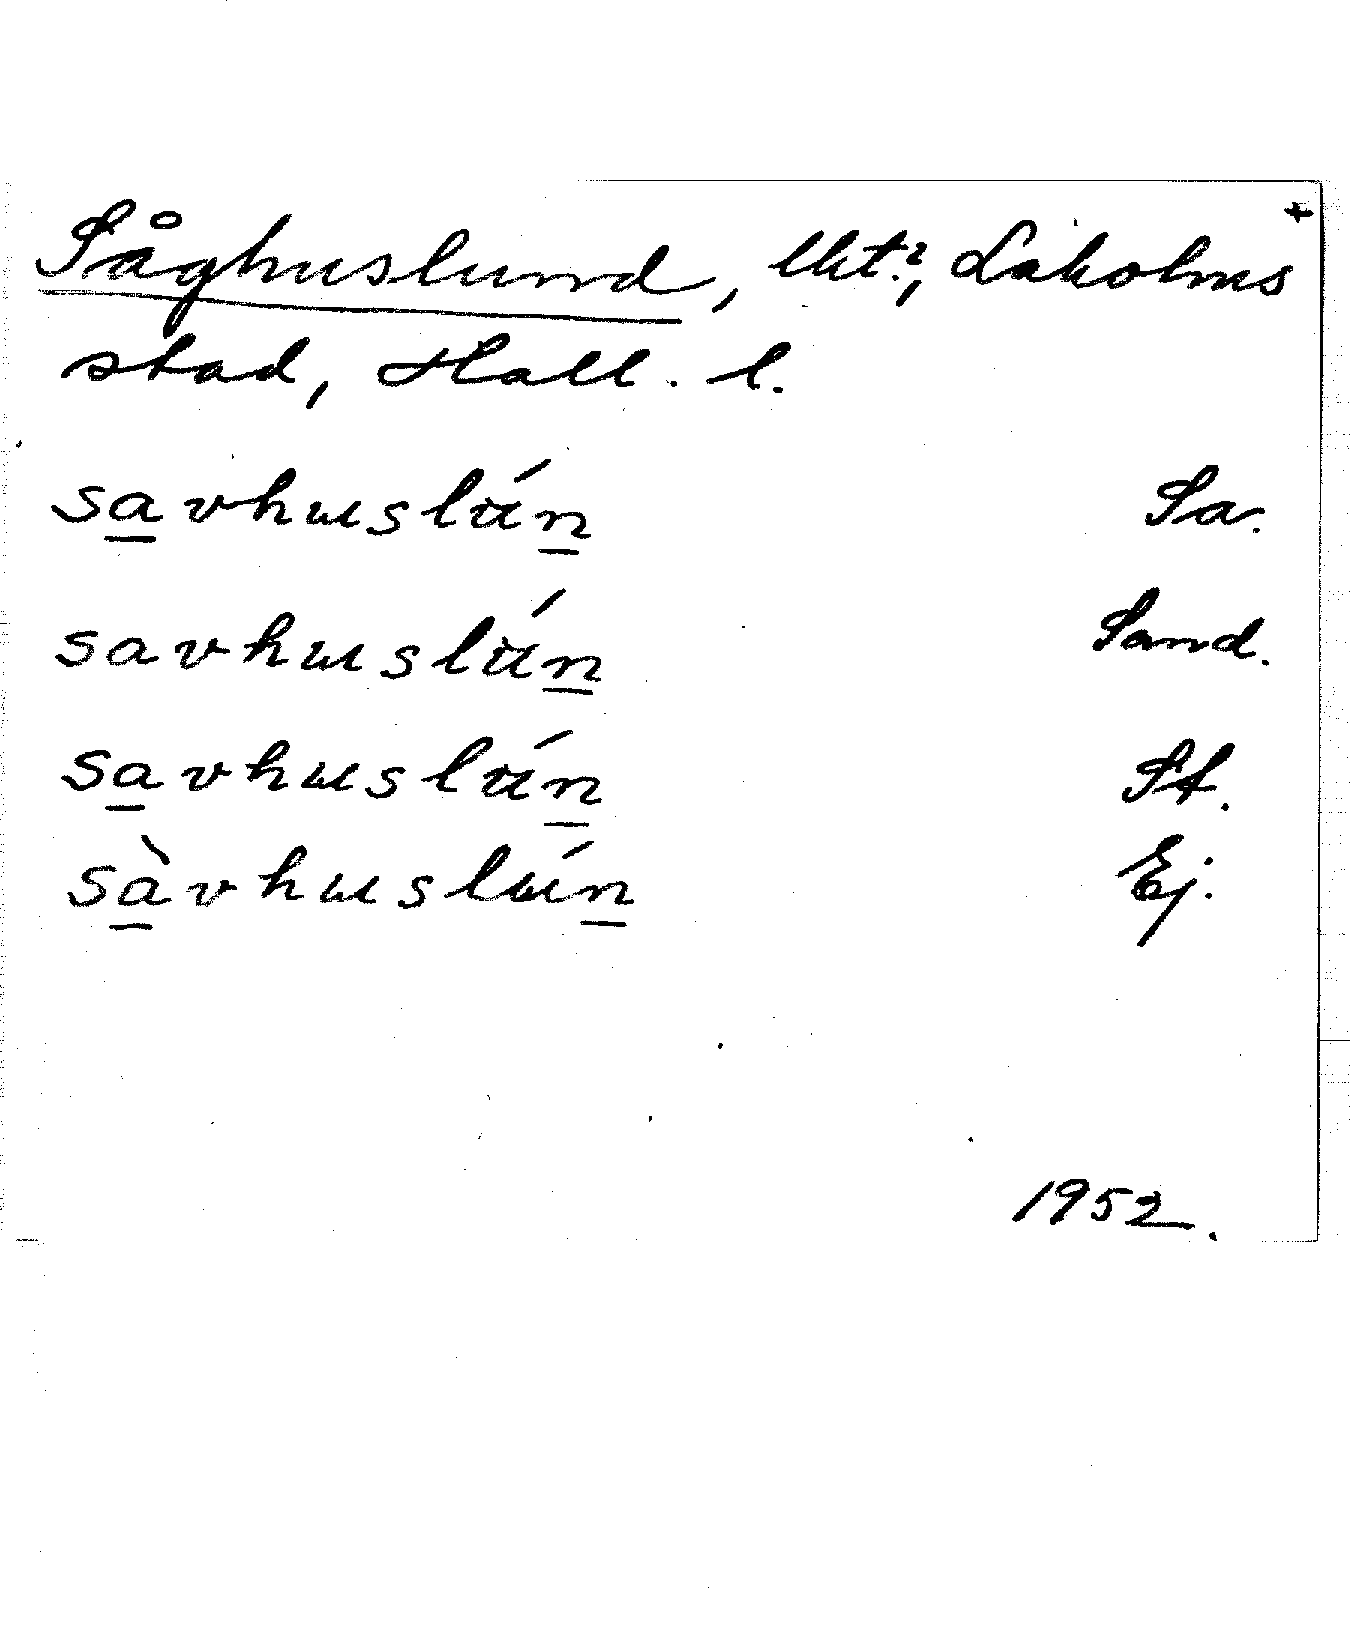 +
Såghuslund, lkt?, Laholms
stad, Hall. l.
savhuslún Sa.
savhuslún Sand.
savhuslún St.
sàvhuslún Ej.
1952.